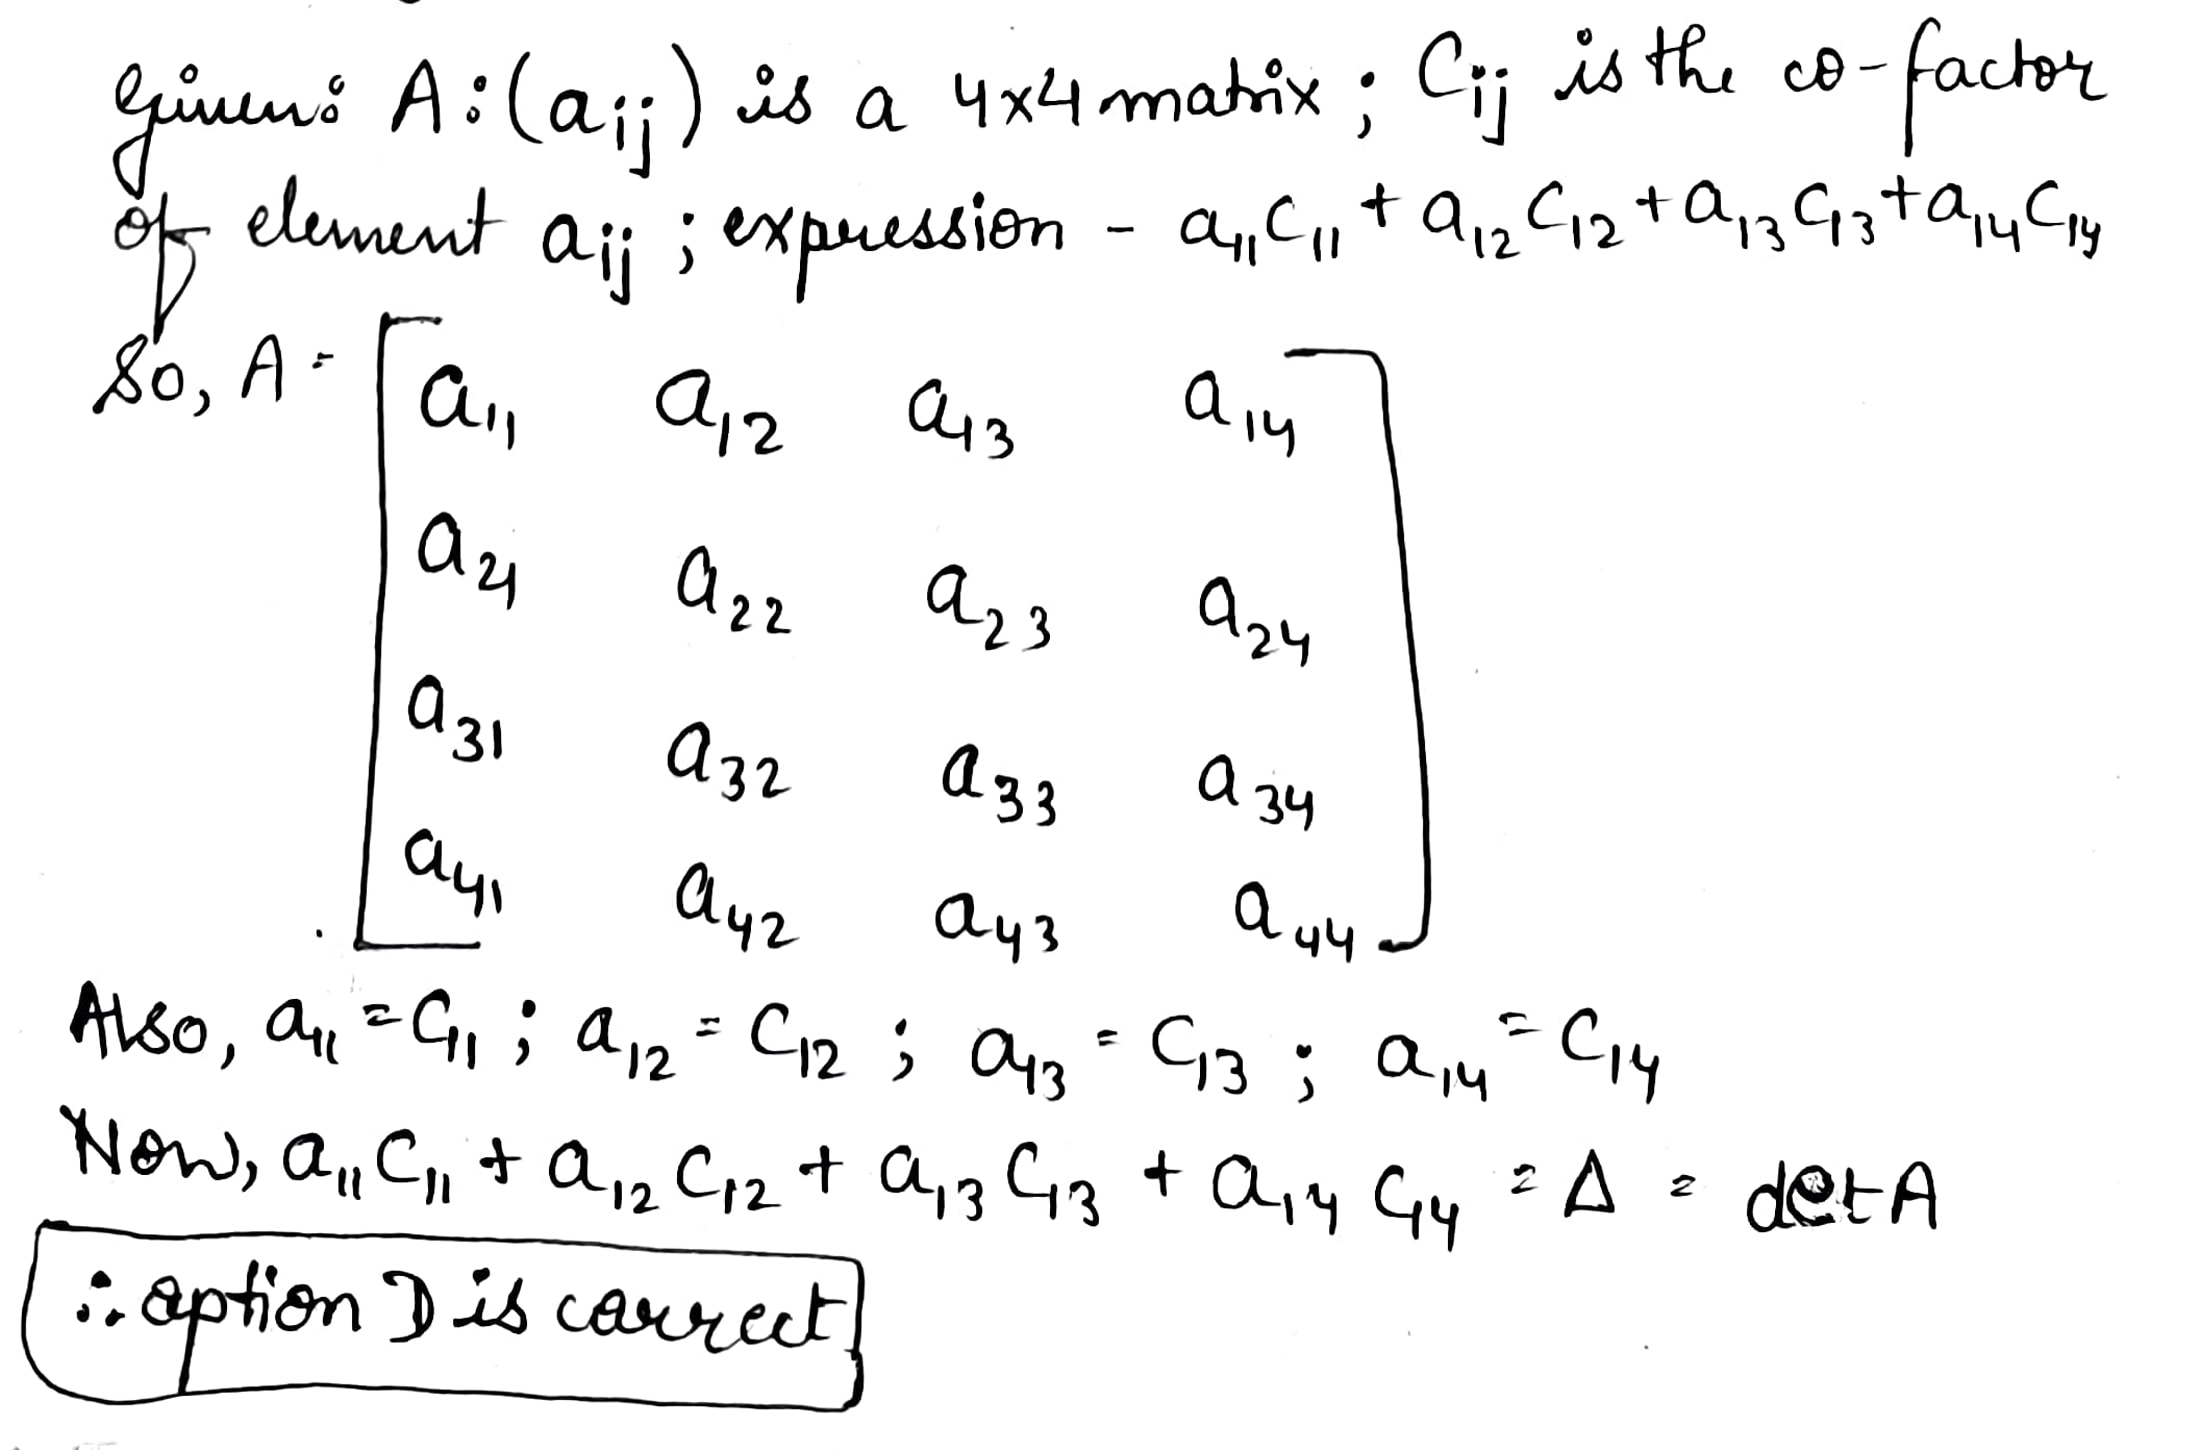 Given: A:(aij) is a 4x4 matrix; Cij is the co-factor
of element aij; expression - a11C11 + a12C12 + a13C13 + a14C14
So, A = [ a11 a12 a13 a14
a21 a22 a23 a24
a31 a32 a33 a34
a41 a42 a43 a44 ]
Also, a11 = C11; a12 = C12; a13 = C13; a14 = C14
Now, a11C11 + a12C12 + a13C13 + a14C14 = Δ = detA
∴ option D is correct